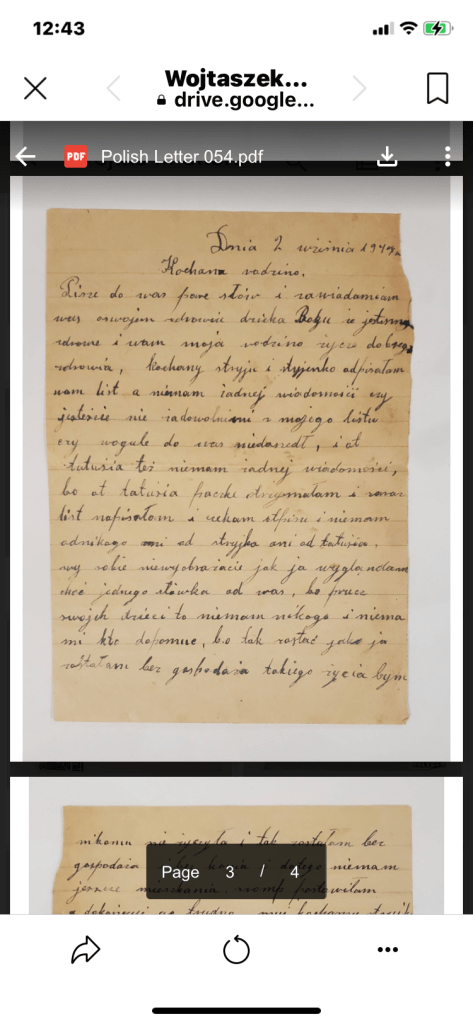 12:43
Wojtaszek...
drive.google...
PDF Polish Letter 054.pdf
Dnia 2 wriśnia
Kochana rodzino.
Pisze do was parę słów i zawiadamiam
was oswojem zdrowiu dzieka Bogu ie jestesmy
zdrowe i wam moja rodzino rycze dobrego
zdrowia, kochany stryju i stryjenko odpisałam
wam list a niemam żadnej wiadomości czy
jesteście nie zadowolnieni z mojego listu
czy wogule do was niedoszedł, i ot
tatusia też niemam żadnej wiadomości,
bo ot tatusia paczke otrzymałam i zaraz
list napisałam i czekam otpisu i niemam
odnikogo ani od stryjka ani od tatusia.
wy sobie niewyobrażacie jak ja wyglondam
choć jednego słówka od was, bo precz
swojch dzieci to niemam nikogo i niema
mi kto dopomuc, bo tak rostać jako ja
rostałam bez gospodaża takiego życia bym
nikomu nie życzyła i tak zostałam bez
gospodaża i niemam
jeszcze mieszkania
Page 3 / 4